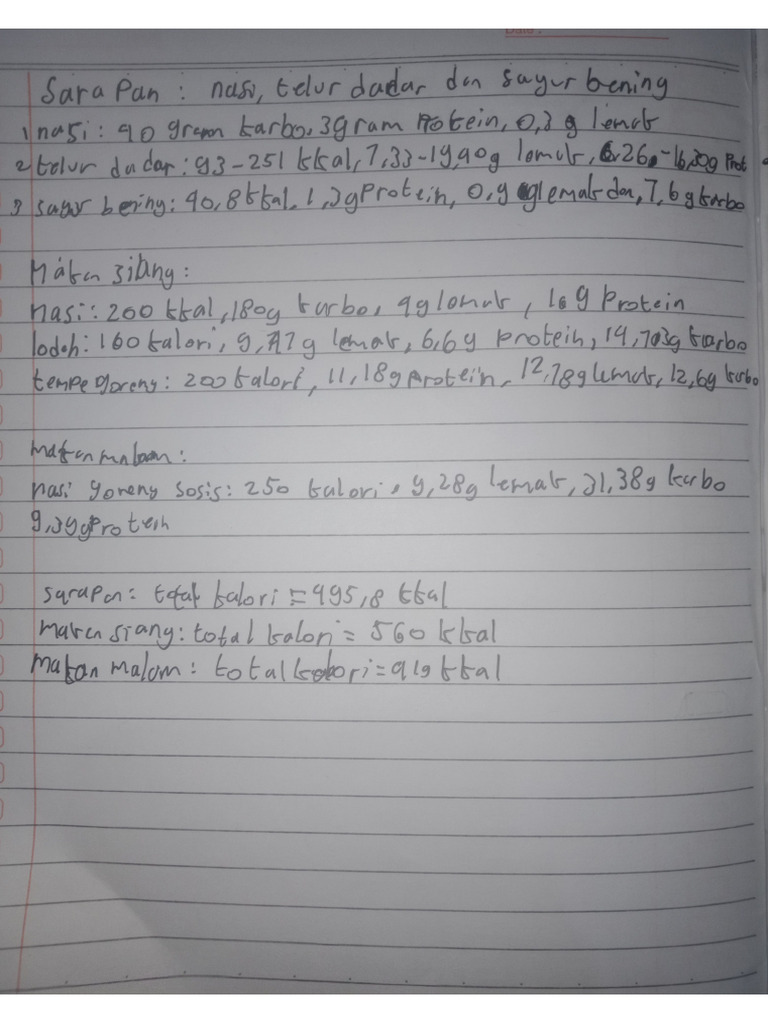 Sarapan : nasi, telur dadar dan sayur bening
1 nasi : 40 gram karbo, 3gram Protein, 0,3 g lemak
2 telur dadar : 93-251 kkal, 7,33-19,90g lemak, 6.26-16,30g Prot
3 sayur bening : 40,8 kkal, 1,3g Protein, 0,4 g lemak dan, 7,6 g karbo
Makan siang :
nasi : 200 kkal, 180g karbo, 4g lemak, 16g Protein
lodeh : 160 kalori, 9,77g lemak, 6,6g protein, 14,703g karbo
tempe goreng : 200 kalori, 11,18g Protein, 12,78g lemak, 12,6g karbo
makan malam :
nasi goreng sosis : 250 kalori, 9,28g lemak, 31,38g karbo
9,39g Protein
sarapan : total kalori = 495,8 kkal
makan siang : total kalori = 560 kkal
Makan Malam : total kalori = 419 kkal